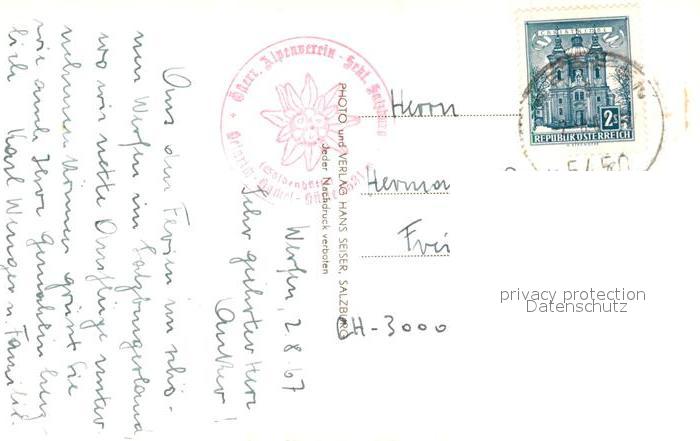 Werfen, 2.8.67
Sehr geehrter Herr
Anker!
Aus den Ferien im schö-
nen Werfen im Salzburgerland,
wo wir nette Ausflüge unter-
nehmen können grüsst Sie
wie auch Ihre Gemahlin herz-
lich Karl Wenger u. Familie.
Österr. Alpenverein - Sekt. Salzburg
PHOTO und VERLAG HANS SEISER, SALZBURG
Jeder Nachdruck verboten
Herrn
Herma
Frei
CH-3000
CHRISTKINDL
2S
REPUBLIK ÖSTERREICH
5450
privacy protection
Datenschutz